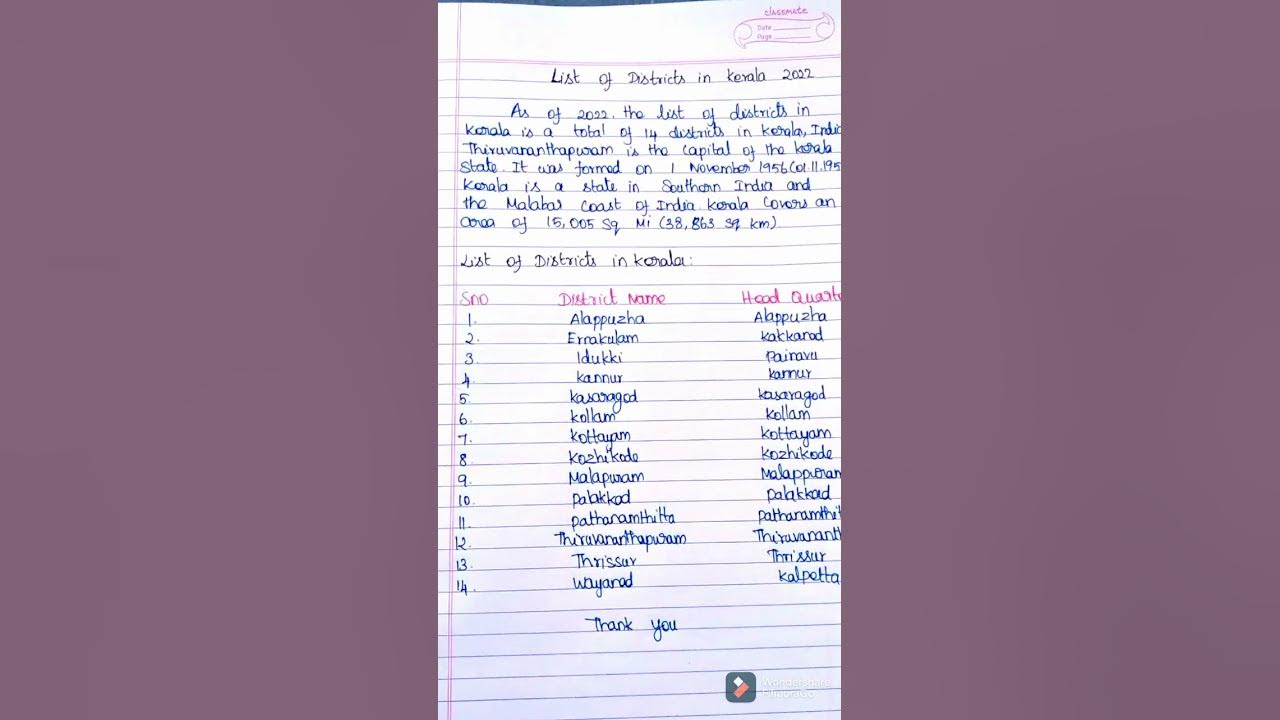 classmate
Date
Page
List of Districts in Kerala 2022
As of 2022. the list of districts in
Kerala is a total of 14 districts in Kerala, India
Thiruvananthapuram is the capital of the kerala
State. It was formed on 1 November 1956 (01.11.195
Kerala is a state in Southern India and
the Malabar Coast of India. Kerala Covers an
area of 15,005 Sq Mi (38,863 sq km)
List of Districts in Kerala:
Sno District Name Head Quarte
1. Alappuzha Alappuzha
2. Ernakulam Kakkanad
3. Idukki Painavu
4. Kannur Kannur
5. Kasaragod Kasaragod
6. Kollam Kollam
7. Kottayam Kottayam
8. Kozhikode Kozhikode
9. Malapuram Malappuram
10. Palakkad Palakkad
11. Pathanamthitta Pathanamthit
12. Thiruvananthapuram Thiruvananth
13. Thrissur Thrissur
14. Wayanad Kalpetta
Thank you
Wondershare
FilmoraGo